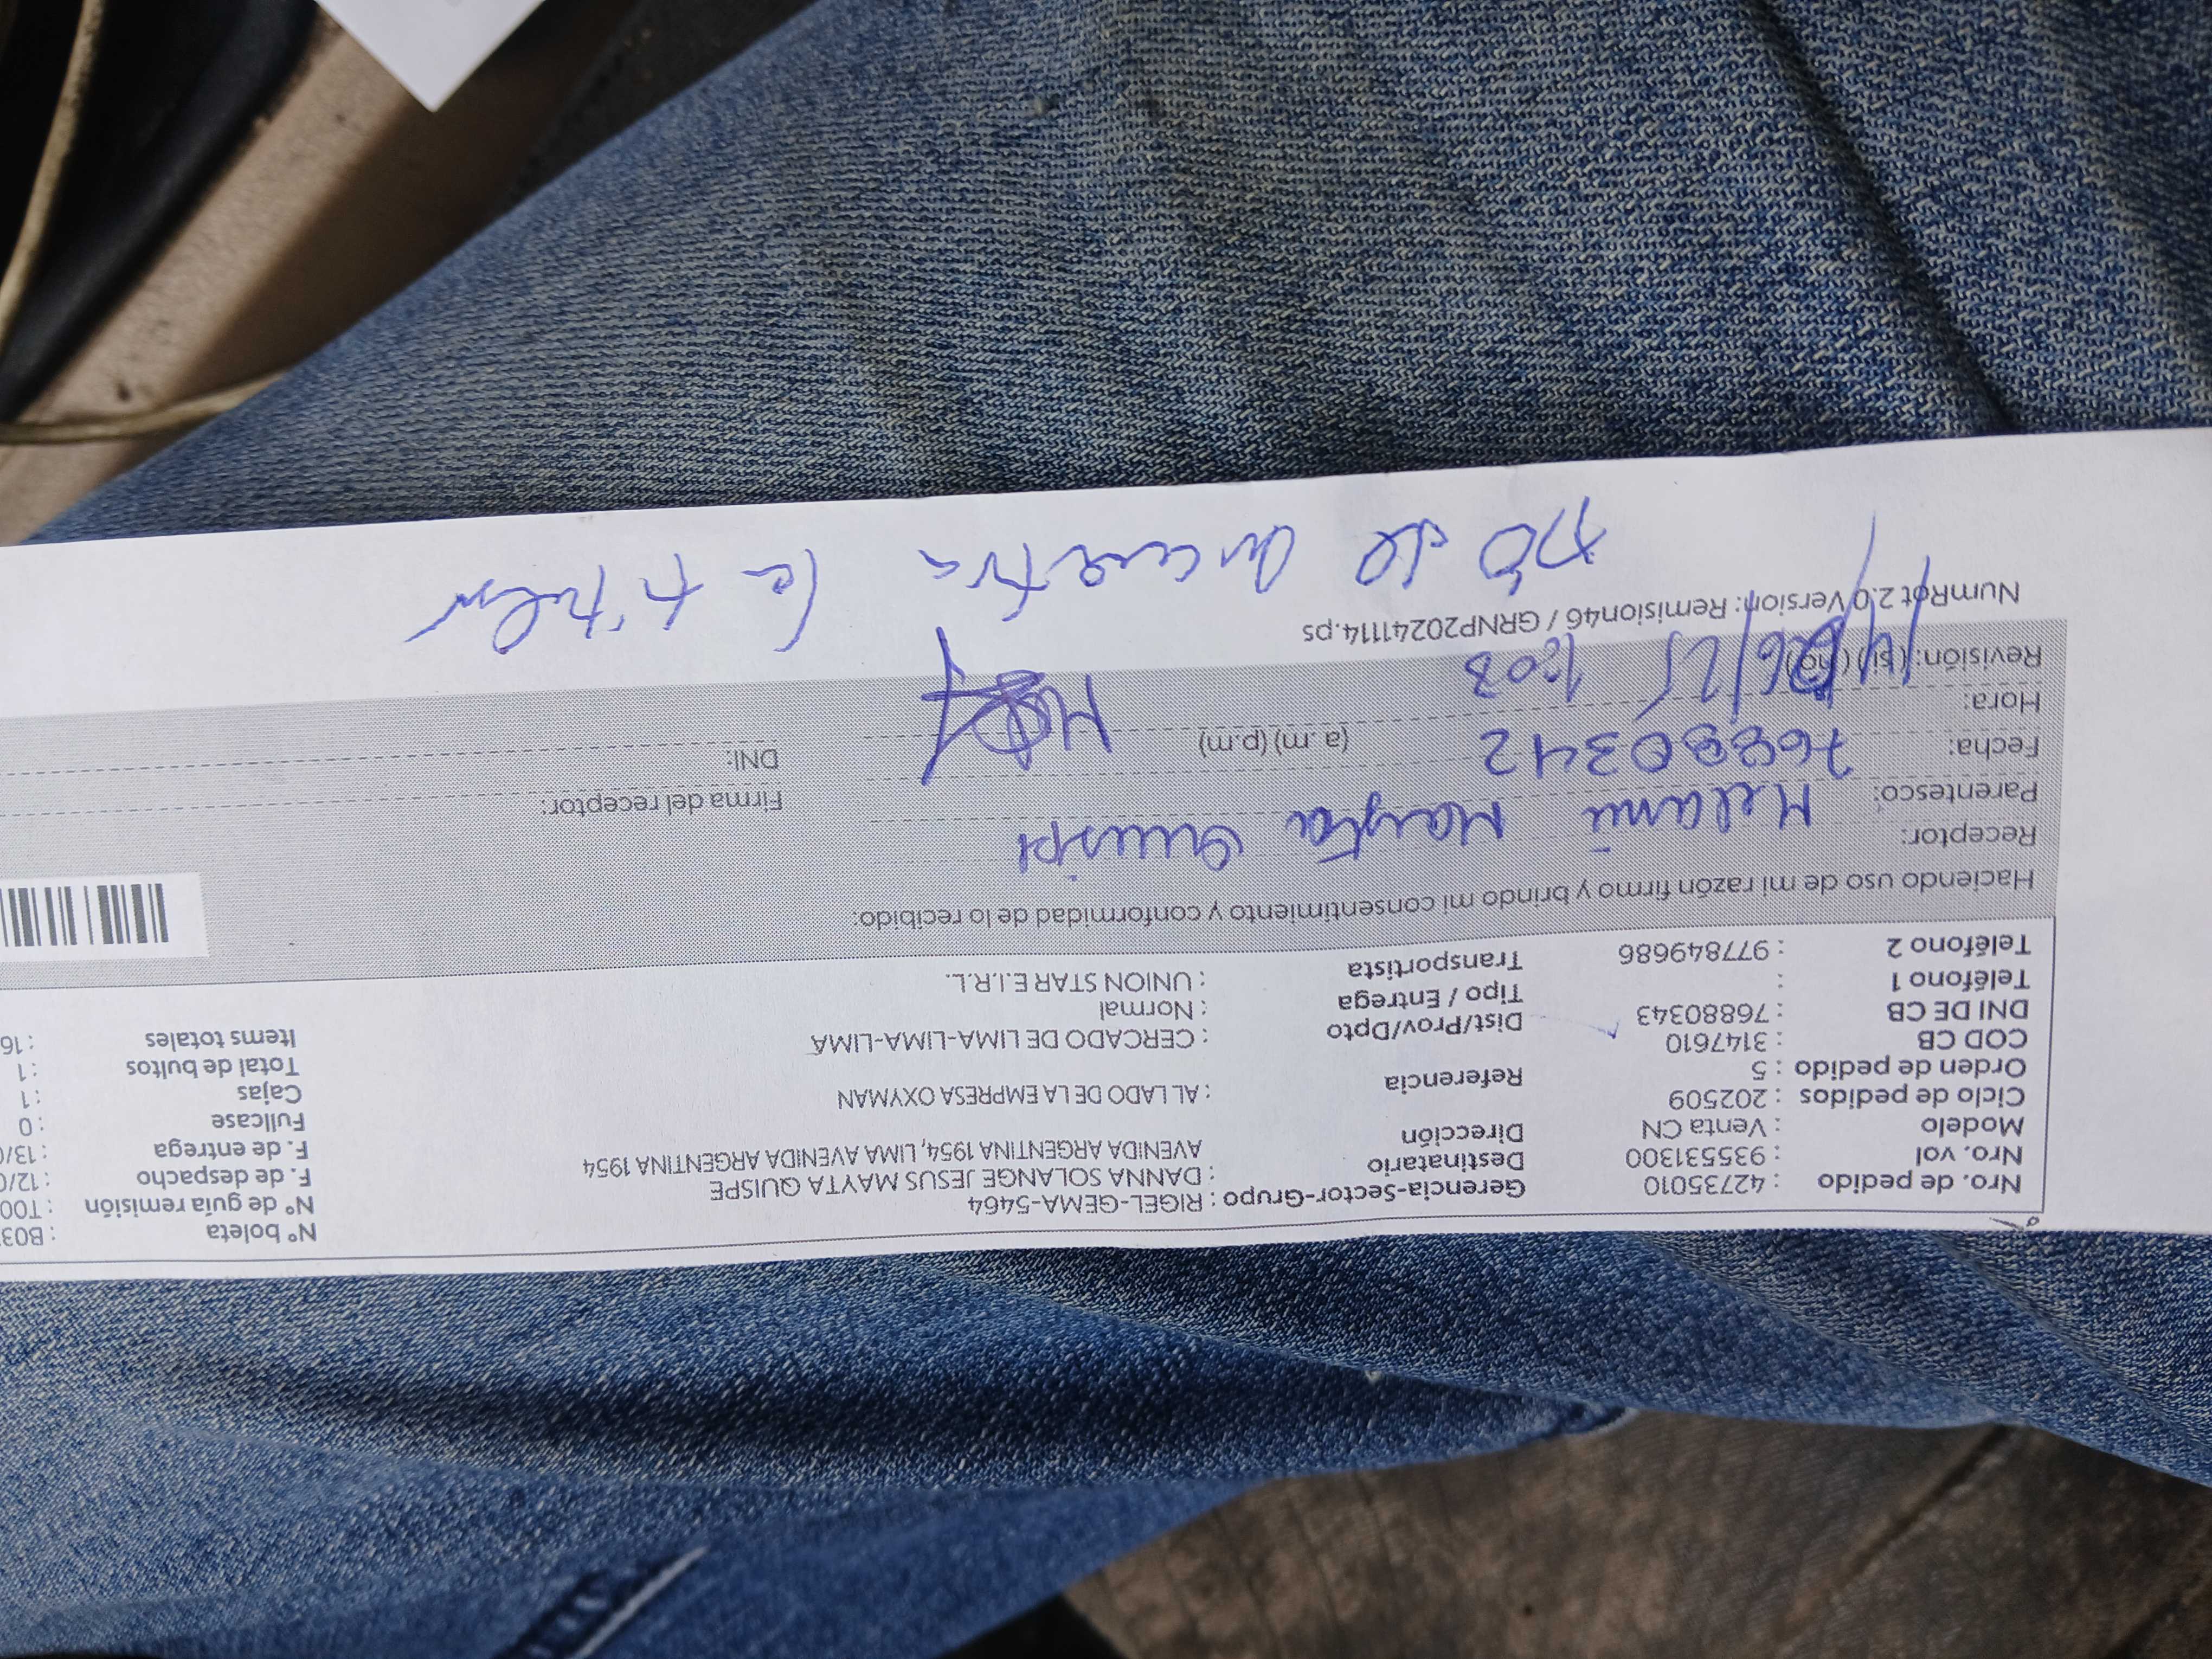 Nro. de pedido : 42735010 Gerencia-Sector-Grupo : RIGEL-GEMA-5464 N° boleta : B03
Nro. vol : 935531300 Destinatario : DANNA SOLANGE JESUS MAYTA QUISPE N° de guía remisión : T00
Modelo : Venta CN Dirección AVENIDA ARGENTINA 1954, LIMA AVENIDA ARGENTINA 1954 F. de despacho : 12/0
Ciclo de pedidos : 202509 F. de entrega : 13/0
Orden de pedido : 5 Referencia : AL LADO DE LA EMPRESA OXYMAN Fullcase : 0
COD CB : 3147610 Cajas : 1
DNI DE CB : 76880343 Dist/Prov/Dpto : CERCADO DE LIMA-LIMA-LIMA Total de bultos : 1
Teléfono 1 : Tipo / Entrega : Normal Items totales : 16
Teléfono 2 : 977849686 Transportista : UNION STAR E.I.R.L.
Haciendo uso de mi razón firmo y brindo mi consentimiento y conformidad de lo recibido:
Receptor: Melanie Mayta Quispe
Parentesco: Firma del receptor:
Fecha: 76880342 (a.m) (p.m) DNI:
Hora:
Revisión: (si) (no) 14/06/25 1:03
NumRot 2.0 Version: Remision46 / GRNP20241114.ps
no se encuentra la titular